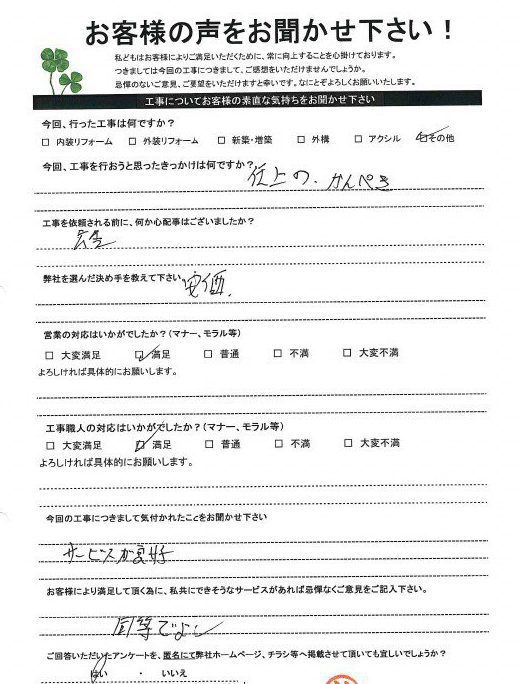 お客様の声をお聞かせ下さい！
私どもはお客様によりご満足いただくために、常に向上することを心掛けております。
つきましては今回の工事につきまして、ご感想をいただけませんでしょうか。
忌憚のないご意見、ご要望をいただけますと幸いです。なにとぞよろしくお願いいたします。
工事についてお客様の素直な気持ちをお聞かせ下さい
今回、行った工事は何ですか？
□ 内装リフォーム □ 外装リフォーム □ 新築・増築 □ 外構 □ アクシル □ その他
今回、工事を行おうと思ったきっかけは何ですか？
仕上の、かんぺき
工事を依頼される前に、何か心配事はございましたか？
弊社を選んだ決め手を教えて下さい
安価、
営業の対応はいかがでしたか？（マナー、モラル等）
□ 大変満足 □ 満足 □ 普通 □ 不満 □ 大変不満
よろしければ具体的にお願いします。
工事職人の対応はいかがでしたか？（マナー、モラル等）
□ 大変満足 □ 満足 □ 普通 □ 不満 □ 大変不満
よろしければ具体的にお願いします。
今回の工事につきまして気付かれたことをお聞かせ下さい
サービスが良好
お客様により満足して頂く為に、私共にできそうなサービスがあれば忌憚なくご意見をご記入下さい。
同等でよし
ご回答いただいたアンケートを、匿名にて弊社ホームページ、チラシ等へ掲載させて頂いても宜しいでしょうか？
はい ・ いいえ